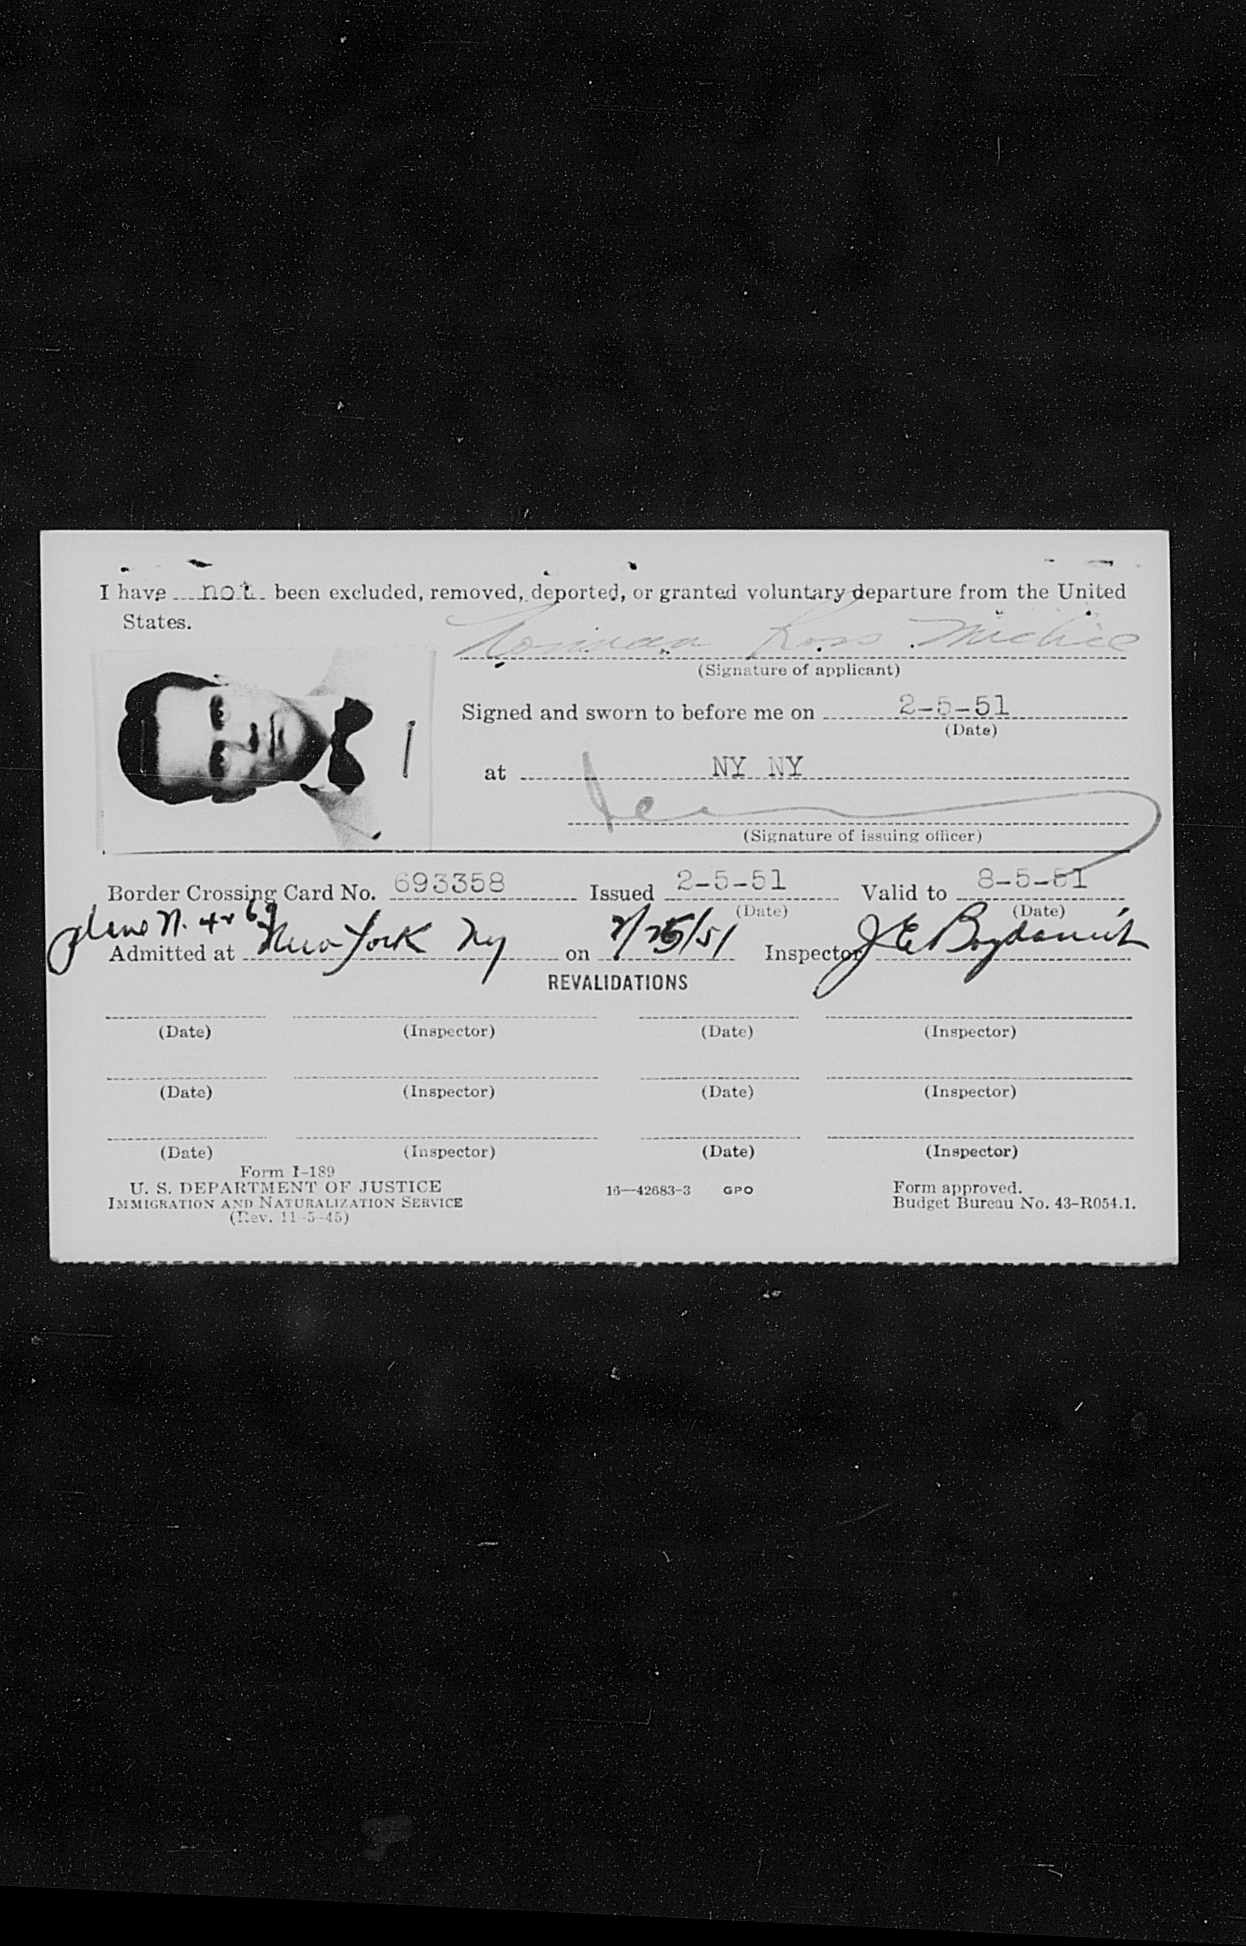 I have not been excluded, removed, deported, or granted voluntary departure from the United
States.
Norman Ross Michie
(Signature of applicant)
Signed and sworn to before me on 2-5-51
(Date)
at NY NY
(Signature of issuing officer)
Border Crossing Card No. 693358 Issued 2-5-51 Valid to 8-5-51
(Date) (Date)
plane N.
Admitted at New York Ny on /25/51 Inspector J E
REVALIDATIONS
(Date) (Inspector) (Date) (Inspector)
(Date) (Inspector) (Date) (Inspector)
(Date) (Inspector) (Date) (Inspector)
Form I-189
U. S. DEPARTMENT OF JUSTICE 16—42683-3 GPO Form approved.
IMMIGRATION AND NATURALIZATION SERVICE Budget Bureau No. 43-R054.1.
(Rev. 11-5-45)